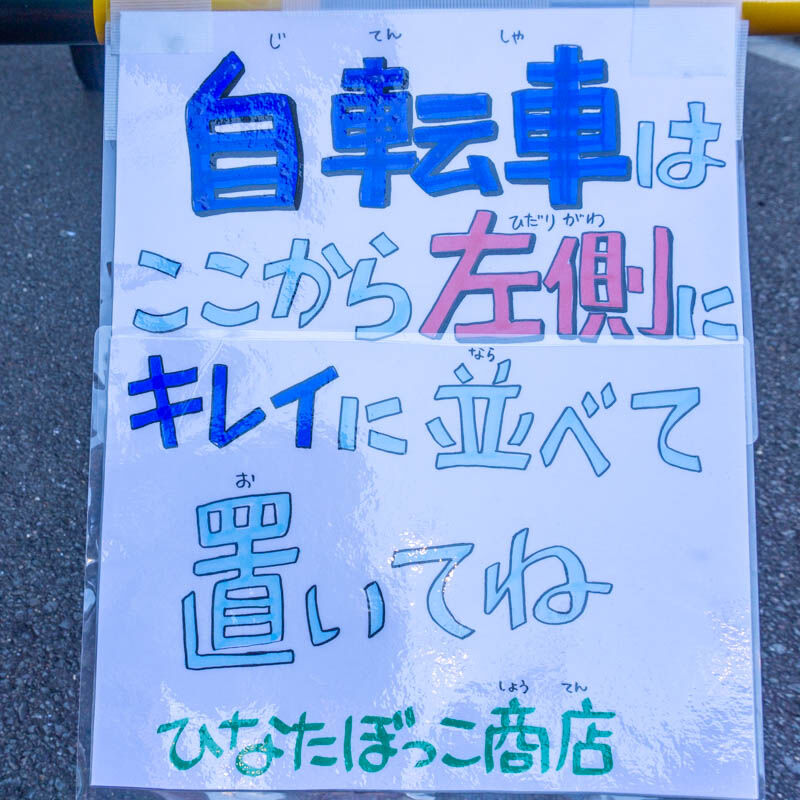 じてんしゃ
自転車は
ひだりがわ
ここから左側に
なら
キレイに並べて
お
置いてね
しょうてん
ひなたぼっこ商店